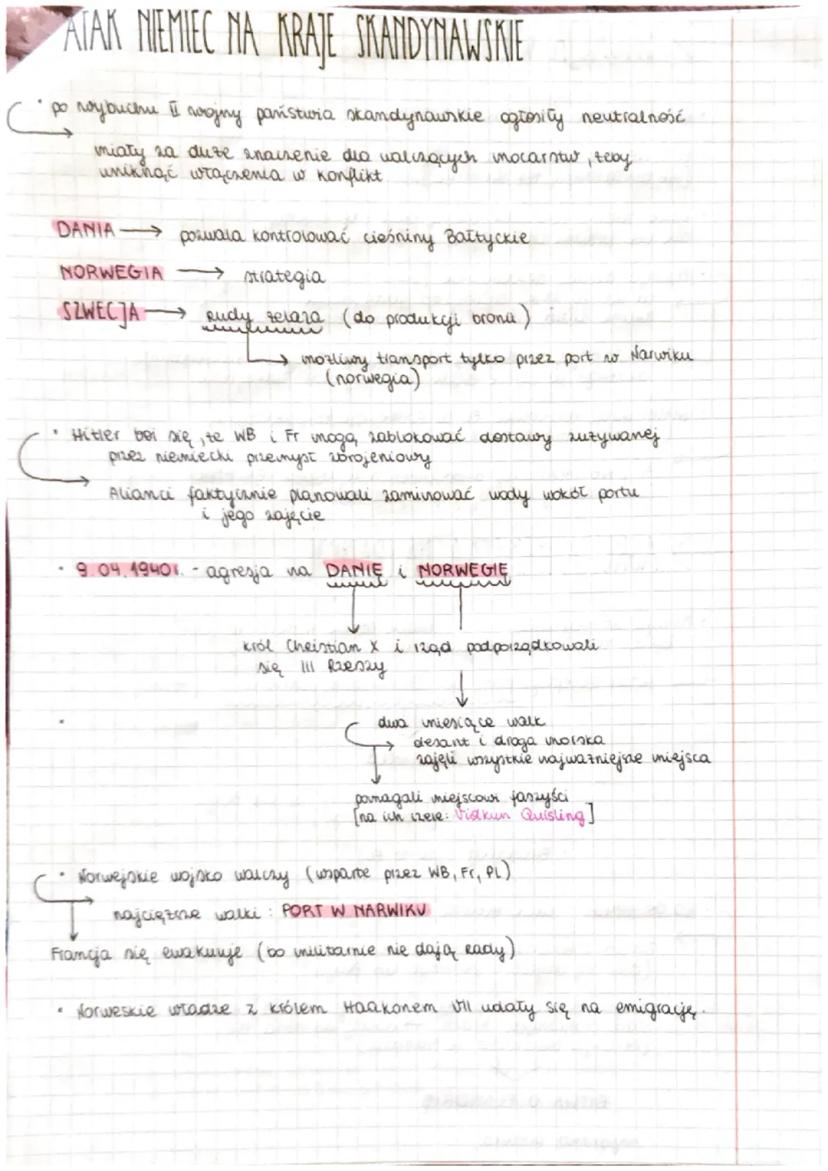 ATAK NIEMIEC NA KRAJE SKANDYNAWSKIE
• po wybuchu II wojny państwia skandynawskie ogłosiły neutralność
miały za duże znaczenie dla walczących mocarstw, żeby
uniknąć włączenia w konflikt
DANIA → pozwala kontrolować cieśniny Bałtyckie
NORWEGIA → strategia
SZWECJA → rudy żelaza (do produkcji broni)
możliwy transport tylko przez port w Narwiku
(norwegia)
• Hitler boi się, że WB i Fr mogą zablokować dostawy zużywanej
przez niemiecki przemysł zbrojeniowy
Alianci faktycznie planowali zaminować wody wokół portu
i jego zajęcie
• 9.04.1940r. - agresja na DANIĘ i NORWEGIĘ
król Christian X i rząd podporządkowali
się III Rzeszy
dwa miesiące walk
desant i droga morska
zajęli wszystkie najważniejsze miejsca
pomagali miejscowi faszyści
[na ich czele: Vidkun Quisling]
• Norwejskie wojsko walczy (wsparte przez WB, Fr, PL)
najcięższe walki: PORT W NARWIKU
Francja się ewakuuje (bo militarnie nie dają rady)
• Norweskie władze z królem Haakonem VII udały się na emigrację.